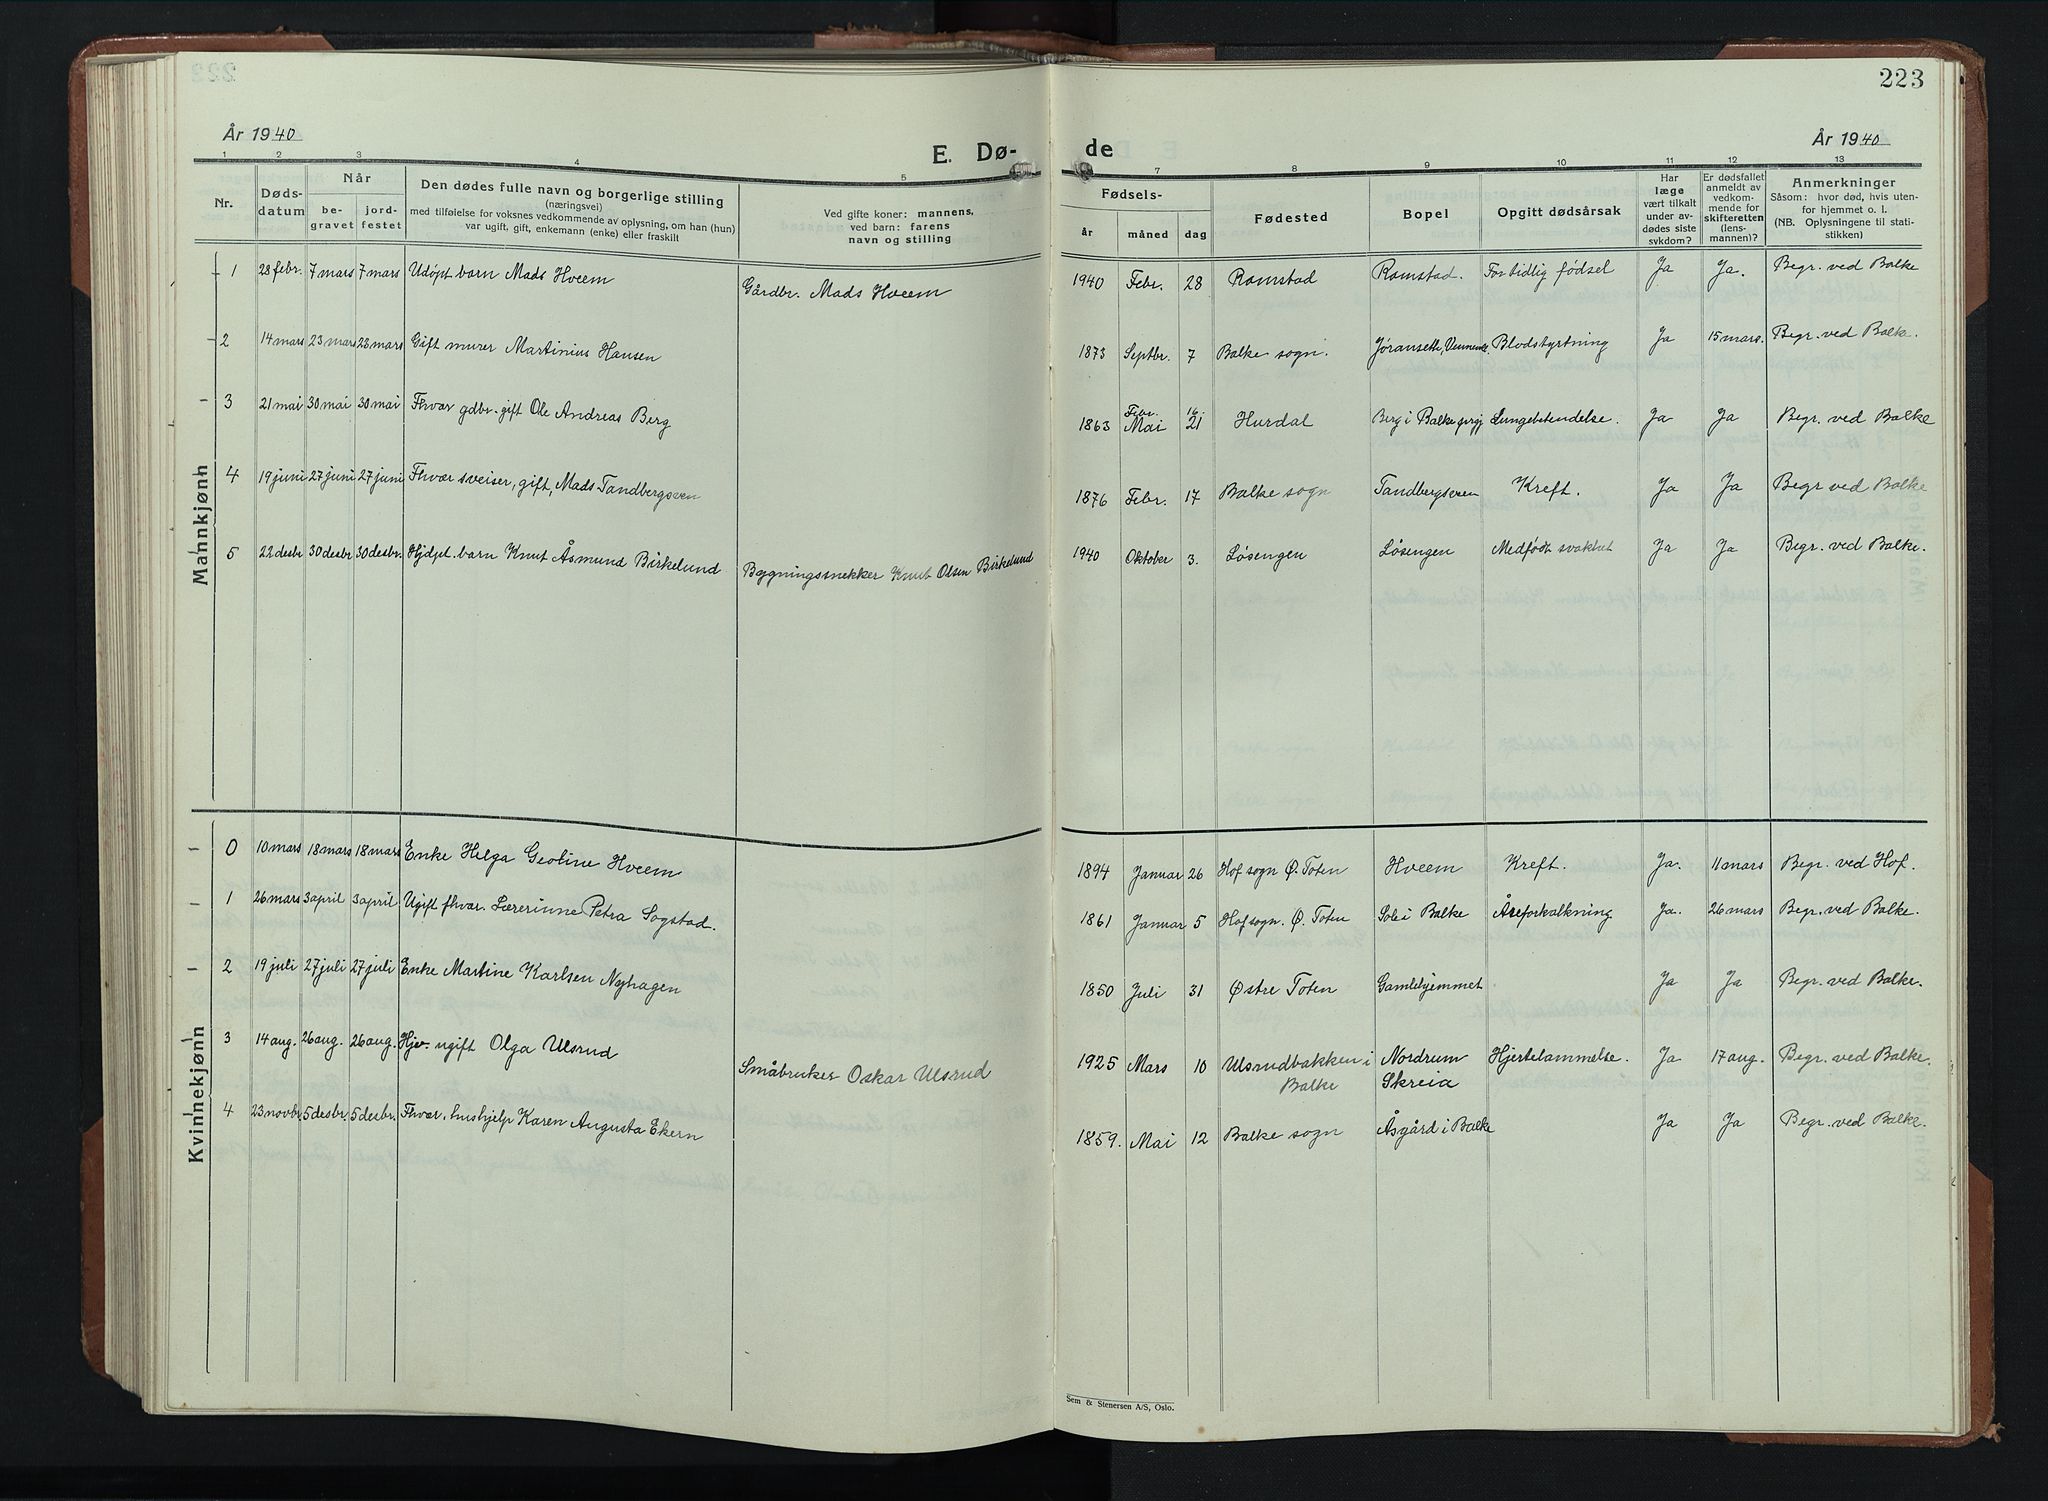 223
År 1940
År 1940
E. Dø-
de
1 2 3 4 5 7 8 9 10 11 12 13
Nr.
Døds-
datum
Når
be-
gravet
jord-
festet
Den dødes fulle navn og borgerlige stilling
(næringsvei)
med tilføielse for voksnes vedkommende av oplysning, om han (hun)
var ugift, gift, enkemann (enke) eller fraskilt
Ved gifte koner: mannens,
ved barn: farens
navn og stilling
Fødsels-
år måned dag
Fødested
Bopel
Opgitt dødsårsak
Har
læge
vært tilkalt
under av-
dødes siste
sykdom?
Er dødsfallet
anmeldt av
vedkom-
mende for
skifteretten
(lens-
mannen)?
Anmerkninger
Såsom: hvor død, hvis uten-
for hjemmet o. l.
(NB. Oplysningene til stati-
stikken)
Mannkjønn
1 28 febr. 7 mars 7 mars Udøpt barn Mads Hveem Gårdbr. Mads Hveem 1940 Febr. 28 Ramstad Ramstad. For tidlig fødsel Ja Ja. Begr. ved Balke
2 14 mars 23 mars 23 mars Gift murer Martinius Hansen 1873 Septbr. 7 Balke sogn. Jøransette, Blodstyrtning Ja 15 mars. Begr. ved Balke.
Febr. 16.
3 21 mai 30 mai 30 mai Fhvær gdbr. gift Ole Andreas Berg 1863 Mai 21 Hurdal Berg i Balke Lungebetendelse. Ja Ja Begr. ved Balke
4 19 juni 27 juni 27 juni Fhvær sveiser, gift, Mads Tandbergsven 1876 Febr. 17 Balke sogn Tandbergsveen Kreft. Ja Ja Begr ved Balke
5 22 desbr 30 desbr 30 desbr. Hjdpt. barn Knut Åsmund Birkelund Bygningssnekker Knut Olsen Birkelund 1940 Oktober 3. Løsengen Løsengen Medfødt svakhet Ja Ja Begr. ved Balke.
Kvinnekjønn
0 10 mars 18 mars 18 mars Enke Helga Geoline Hveem 1894 Januar 26 Hof sogn Ø. Toten Hveem Kreft. Ja. 11 mars Begr. ved Hof.
1 26 mars 3 april 3 april Ugift fhvær. Lærerinne Petra Sogstad. 1861 Januar 5 Hof sogn. Ø. Toten Sole i Balke Åreforkalkning Ja. 26 mars Begr. ved Balke.
2 19 juli 27 juli 27 juli Enke Martine Karlsen Nyhagen 1850 Juli 31 Østre Toten Gamlehjemmet Ja Ja Begr. ved Balke.
3 14 aug. 26 aug. 26 aug. Hjev. ugift Olga Ulsrud Småbruker Oskar Ulsrud 1925 Mars 10 Ulsrudbakken i Nordrum Hjertelammelse. Ja 17 aug. Begr. ved Balke.
Balke Skreia
4 23 novbr. 5 desbr. 5 desbr. Fhvær. hushjelp Karen Augusta Ekern 1859. Mai 12 Balke sogn Åsgård i Balke Ja Ja Begr. ved Balke.
Sem & Stenersen A/S, Oslo.